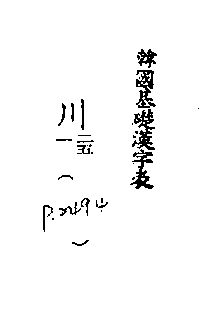 韓國基礎漢字表
川
一二五
(
p.2494
)